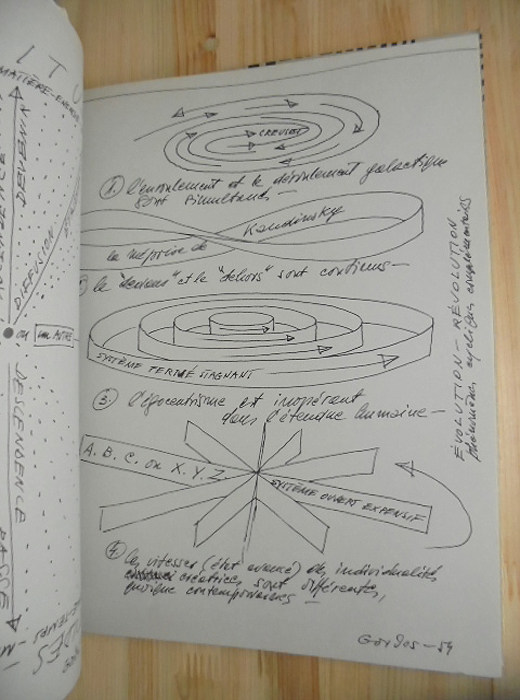 ITU
MATIÈRE-ENERGIE
DIFFUSION
ou un AUTRE
DESCENDENCE
PASSÉ
CREUSET
1. l'enroulement et le déroulement galactique
sont simultanés —
le méprise de Kandinsky
le "dedans" et le "dehors" sont continus —
SYSTÈME FERMÉ STAGNANT
3. l'égocentrisme est inopérant
dans l'étendue humaine —
A. B. C. ou X. Y. Z.
SYSTÈME OUVERT EXPENSIF
4. les vitesses (état avancé) des individualités
créatrices sont différentes,
quoique contemporaines —
ÉVOLUTION — RÉVOLUTION
phénomènes cycliques complémentaires
Gordes — 54